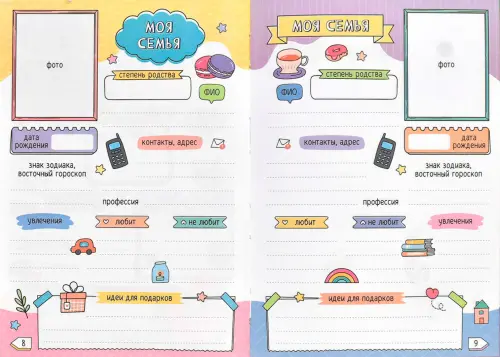 фото
МОЯ
СЕМЬЯ
степень родства
ФИО
дата
рождения
контакты, адрес
знак зодиака,
восточный гороскоп
профессия
увлечения
любит
не любит
идеи для подарков
8
МОЯ СЕМЬЯ
фото
степень родства
ФИО
контакты, адрес
дата
рождения
знак зодиака,
восточный гороскоп
профессия
любит
не любит
увлечения
идеи для подарков
9